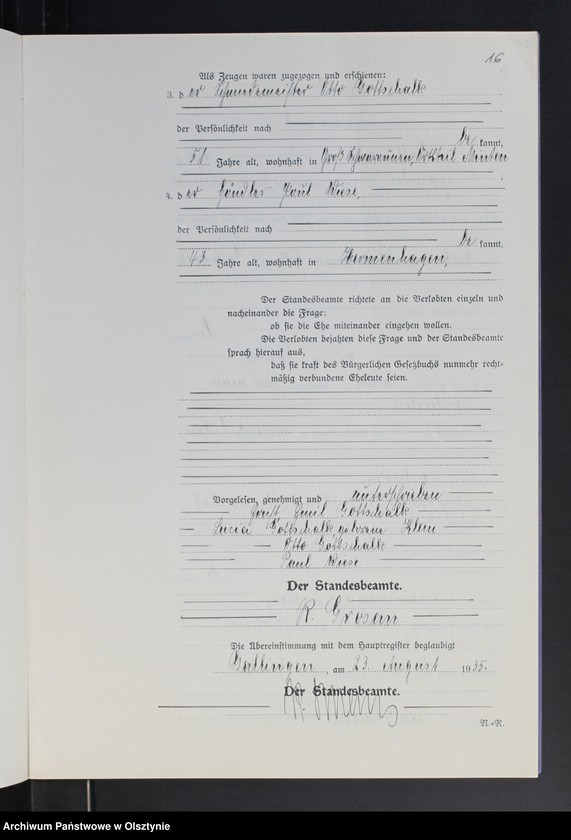 16
Als Zeugen waren zugezogen und erschienen:
3. der Schmiedemeister Otto Gottschalk
der Persönlichkeit nach
be kannt,
51 Jahre alt, wohnhaft in Groß Schwaraunen, Ortsteil Minten
4. der Händler Paul Wiese,
der Persönlichkeit nach
be kannt,
43 Jahre alt, wohnhaft in Hermenhagen,
Der Standesbeamte richtete an die Verlobten einzeln und
nacheinander die Frage:
ob sie die Ehe miteinander eingehen wollen.
Die Verlobten bejahten diese Frage und der Standesbeamte
sprach hierauf aus,
daß sie kraft des Bürgerlichen Gesetzbuchs nunmehr recht-
mäßig verbundene Eheleute seien.
Vorgelesen, genehmigt und unterschrieben
Horst Emil Gottschalk
Lucia Gottschalk geborene Klein
Otto Gottschalk
Paul Wiese
Der Standesbeamte.
R. Grosan
Die Übereinstimmung mit dem Hauptregister beglaubigt
Gallingen, am 23. August 1935.
Der Standesbeamte.
N.+N.
Archiwum Państwowe w Olsztynie